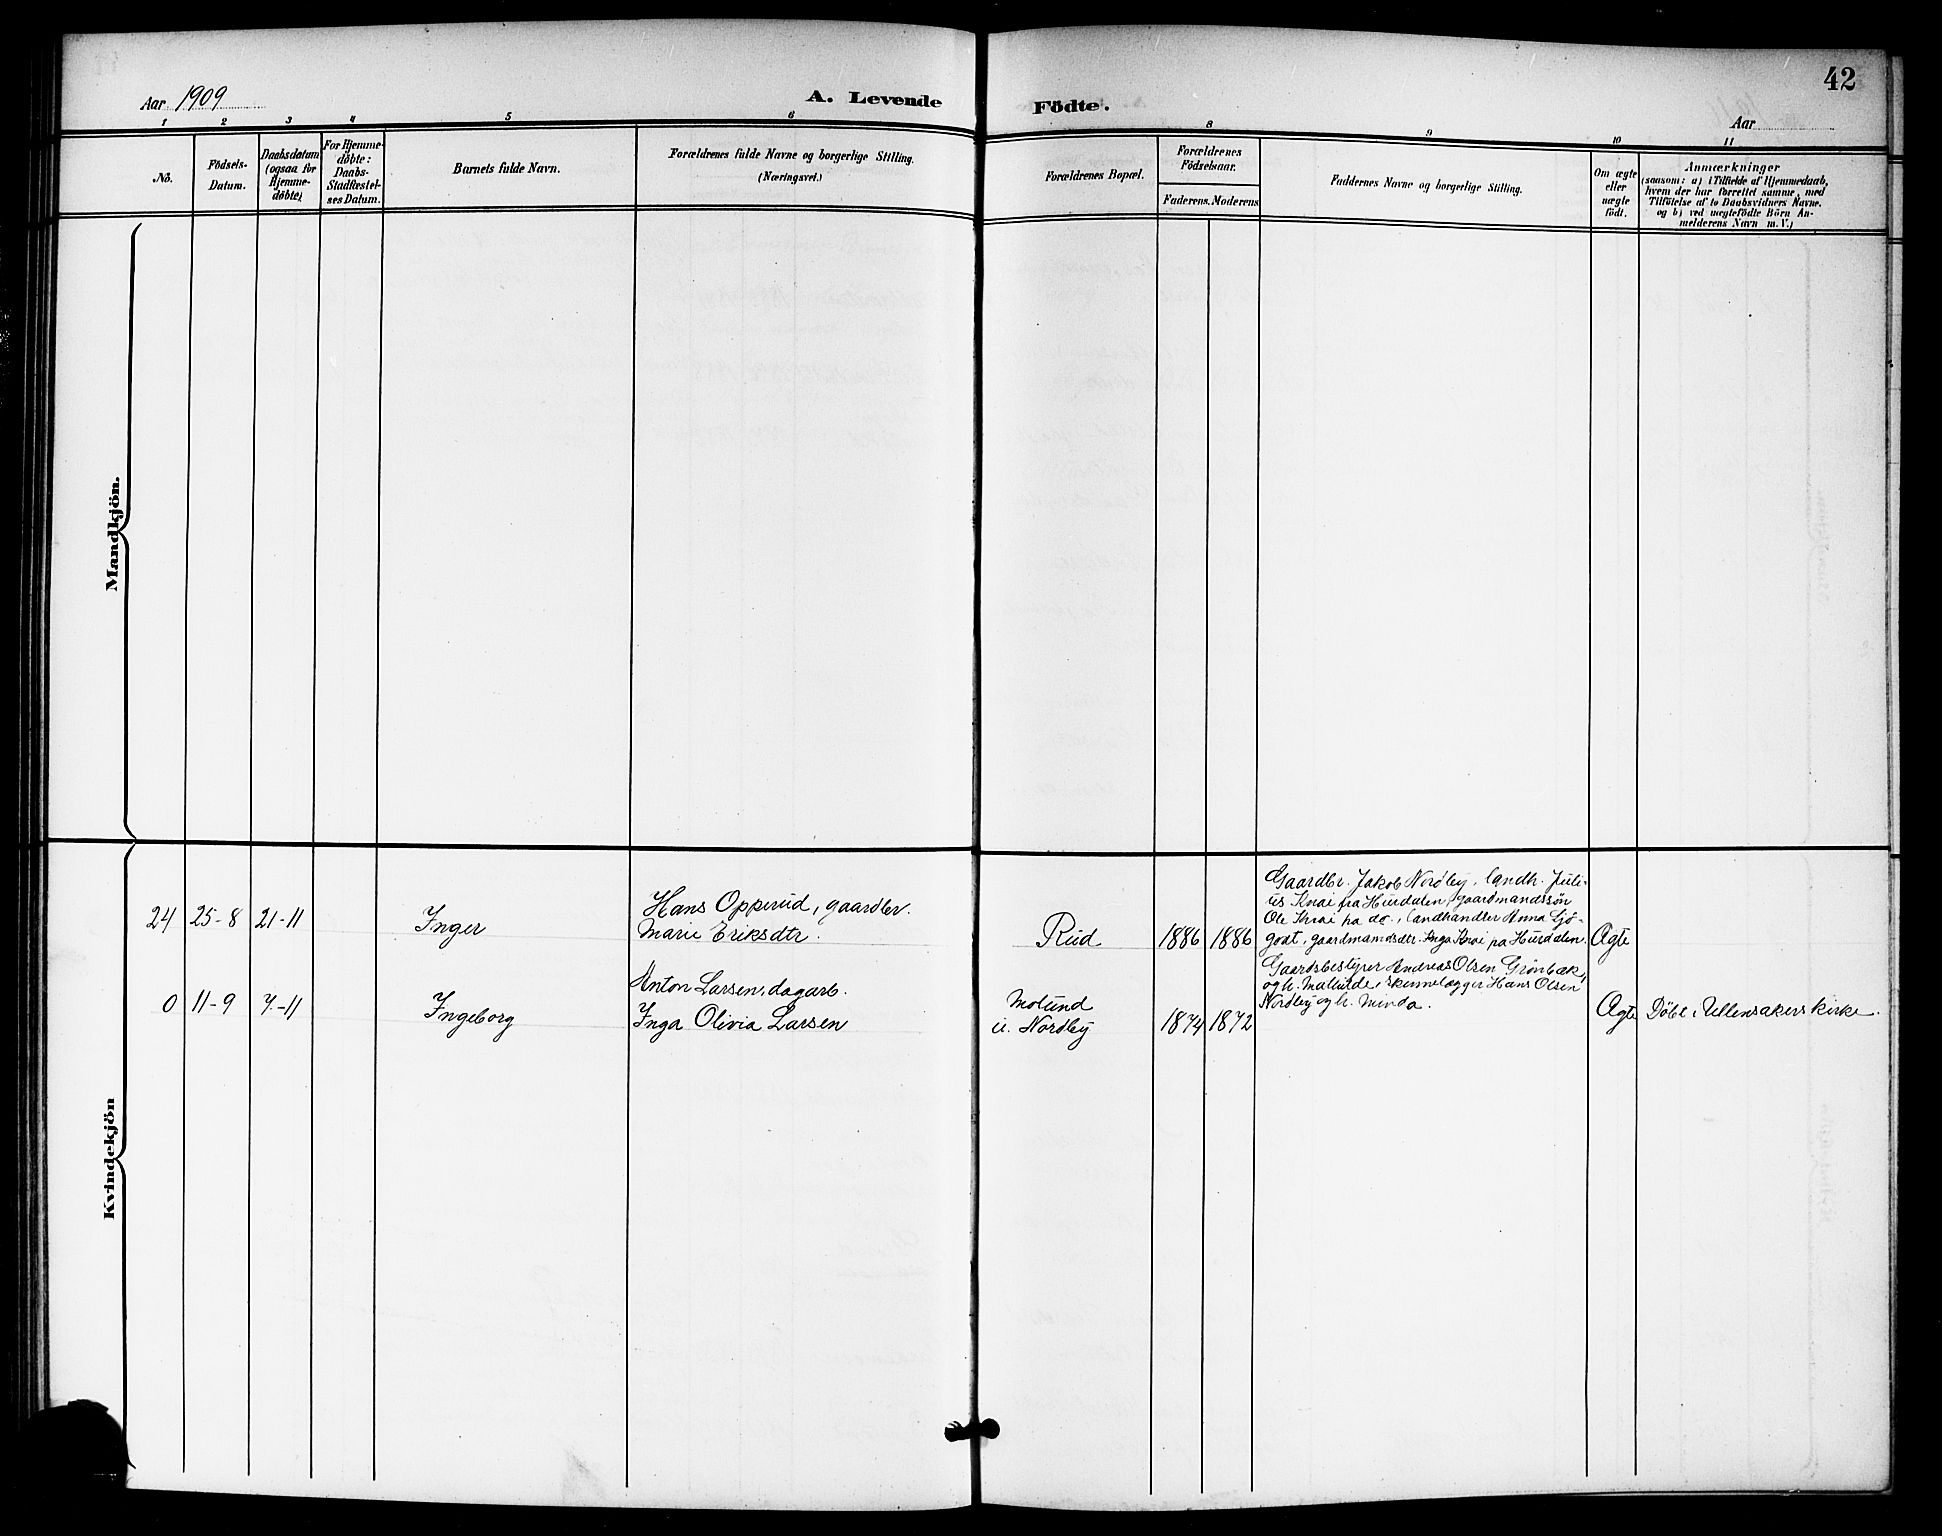 42
Aar 1909
A. Levende
Födte.
Aar
1 2 3 4 5 6
8 9 10 11
No.
Födsels-
Datum.
Daabsdatum
(ogsaa for
Hjemme-
döbte)
For Hjemme-
döbte:
Daabs-
Stadfæstel-
ses Datum.
Barnets fulde Navn.
Forældrenes fulde Navne og borgerlige Stilling.
(Næringsvei.)
Forældrenes Bopæl.
Forældrenes
Födselsaar.
Faderens. Moderens
Faddernes Navne og borgerlige Stilling.
Om ægte
eller
uægte
födt.
Anmærkninger
(saasom: a) i Tilfælde af Hjemmedaab,
hvem der har forrettet samme, med
Tilföielse af to Daabsvidners Navne.
og b) ved uægtefödte Börn An-
melderens Navn m. V.)
Mandkjön.
Kvindekjön
24 25-8 21-11
Inger
Hans Opperud, gaardbr.
Marie Eriksdtr.
Rud
1886 1886
Gaardbr. Jakob Nordby, landh. Juli-
us fra Hurdalen, gaardmandssøn
Ole pa do., landhandler Anna Ljø-
godt, gaardmandsdtr. Inga pa Hurdalen.
Ægte
0 11-9 7-11
Ingeborg
Anton Larsen, dagarb.
Inga Olivia Larsen
Molund
u. Nordby
1874 1872
Gaardsbestyrer Andreas Olsen Grønbæk,
og h. Mathilde, skinnelægger Hans Olsen
Nordby og h. Minda.
Ægte
Döbt i Ullensakers kirke.